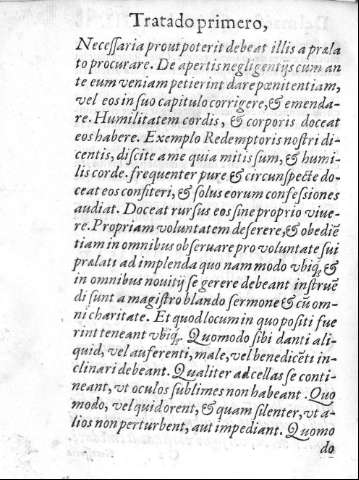 Tratado primero,
Neceſſaria prout poterit debeat illis a præla
to procurare. De apertis negligentijs cum an
te eum veniam petierint dare pœnitentiam,
vel eos in ſuo capitulo corrigere, & emenda-
re. Humilitatem cordis, & corporis doceat
eos habere. Exemplo Redemptoris noſtri di-
centis, diſcite a me quia mitis sum, & humi-
lis corde. frequenter pure & circunſpecte do-
ceat eos confiteri, & ſolus eorum confeſsiones
audiat. Doceat rurſus eos ſine proprio viue-
re. Propriam voluntatem deſerere, & obediẽ
tiam in omnibus obſeruare pro voluntate ſui
prælati ad implenda quo nam modo vbiq; &
in omnibus nouitij ſe gerere debeant inſtruẽ
di ſunt a magiſtro blando ſermone & cũ om-
ni charitate. Et quod locum in quo poſiti fue
rint teneant vbiq;. Quomodo ſibi danti ali-
quid, vel auferenti, male, vel benedicẽti in-
clinari debeant. Qualiter ad cellas ſe conti-
neant, vt oculos ſublimes non habeant. Quo
modo, vel quid orent, & quam ſilenter, vt a-
lios non perturbent, aut impediant. Quomo
do